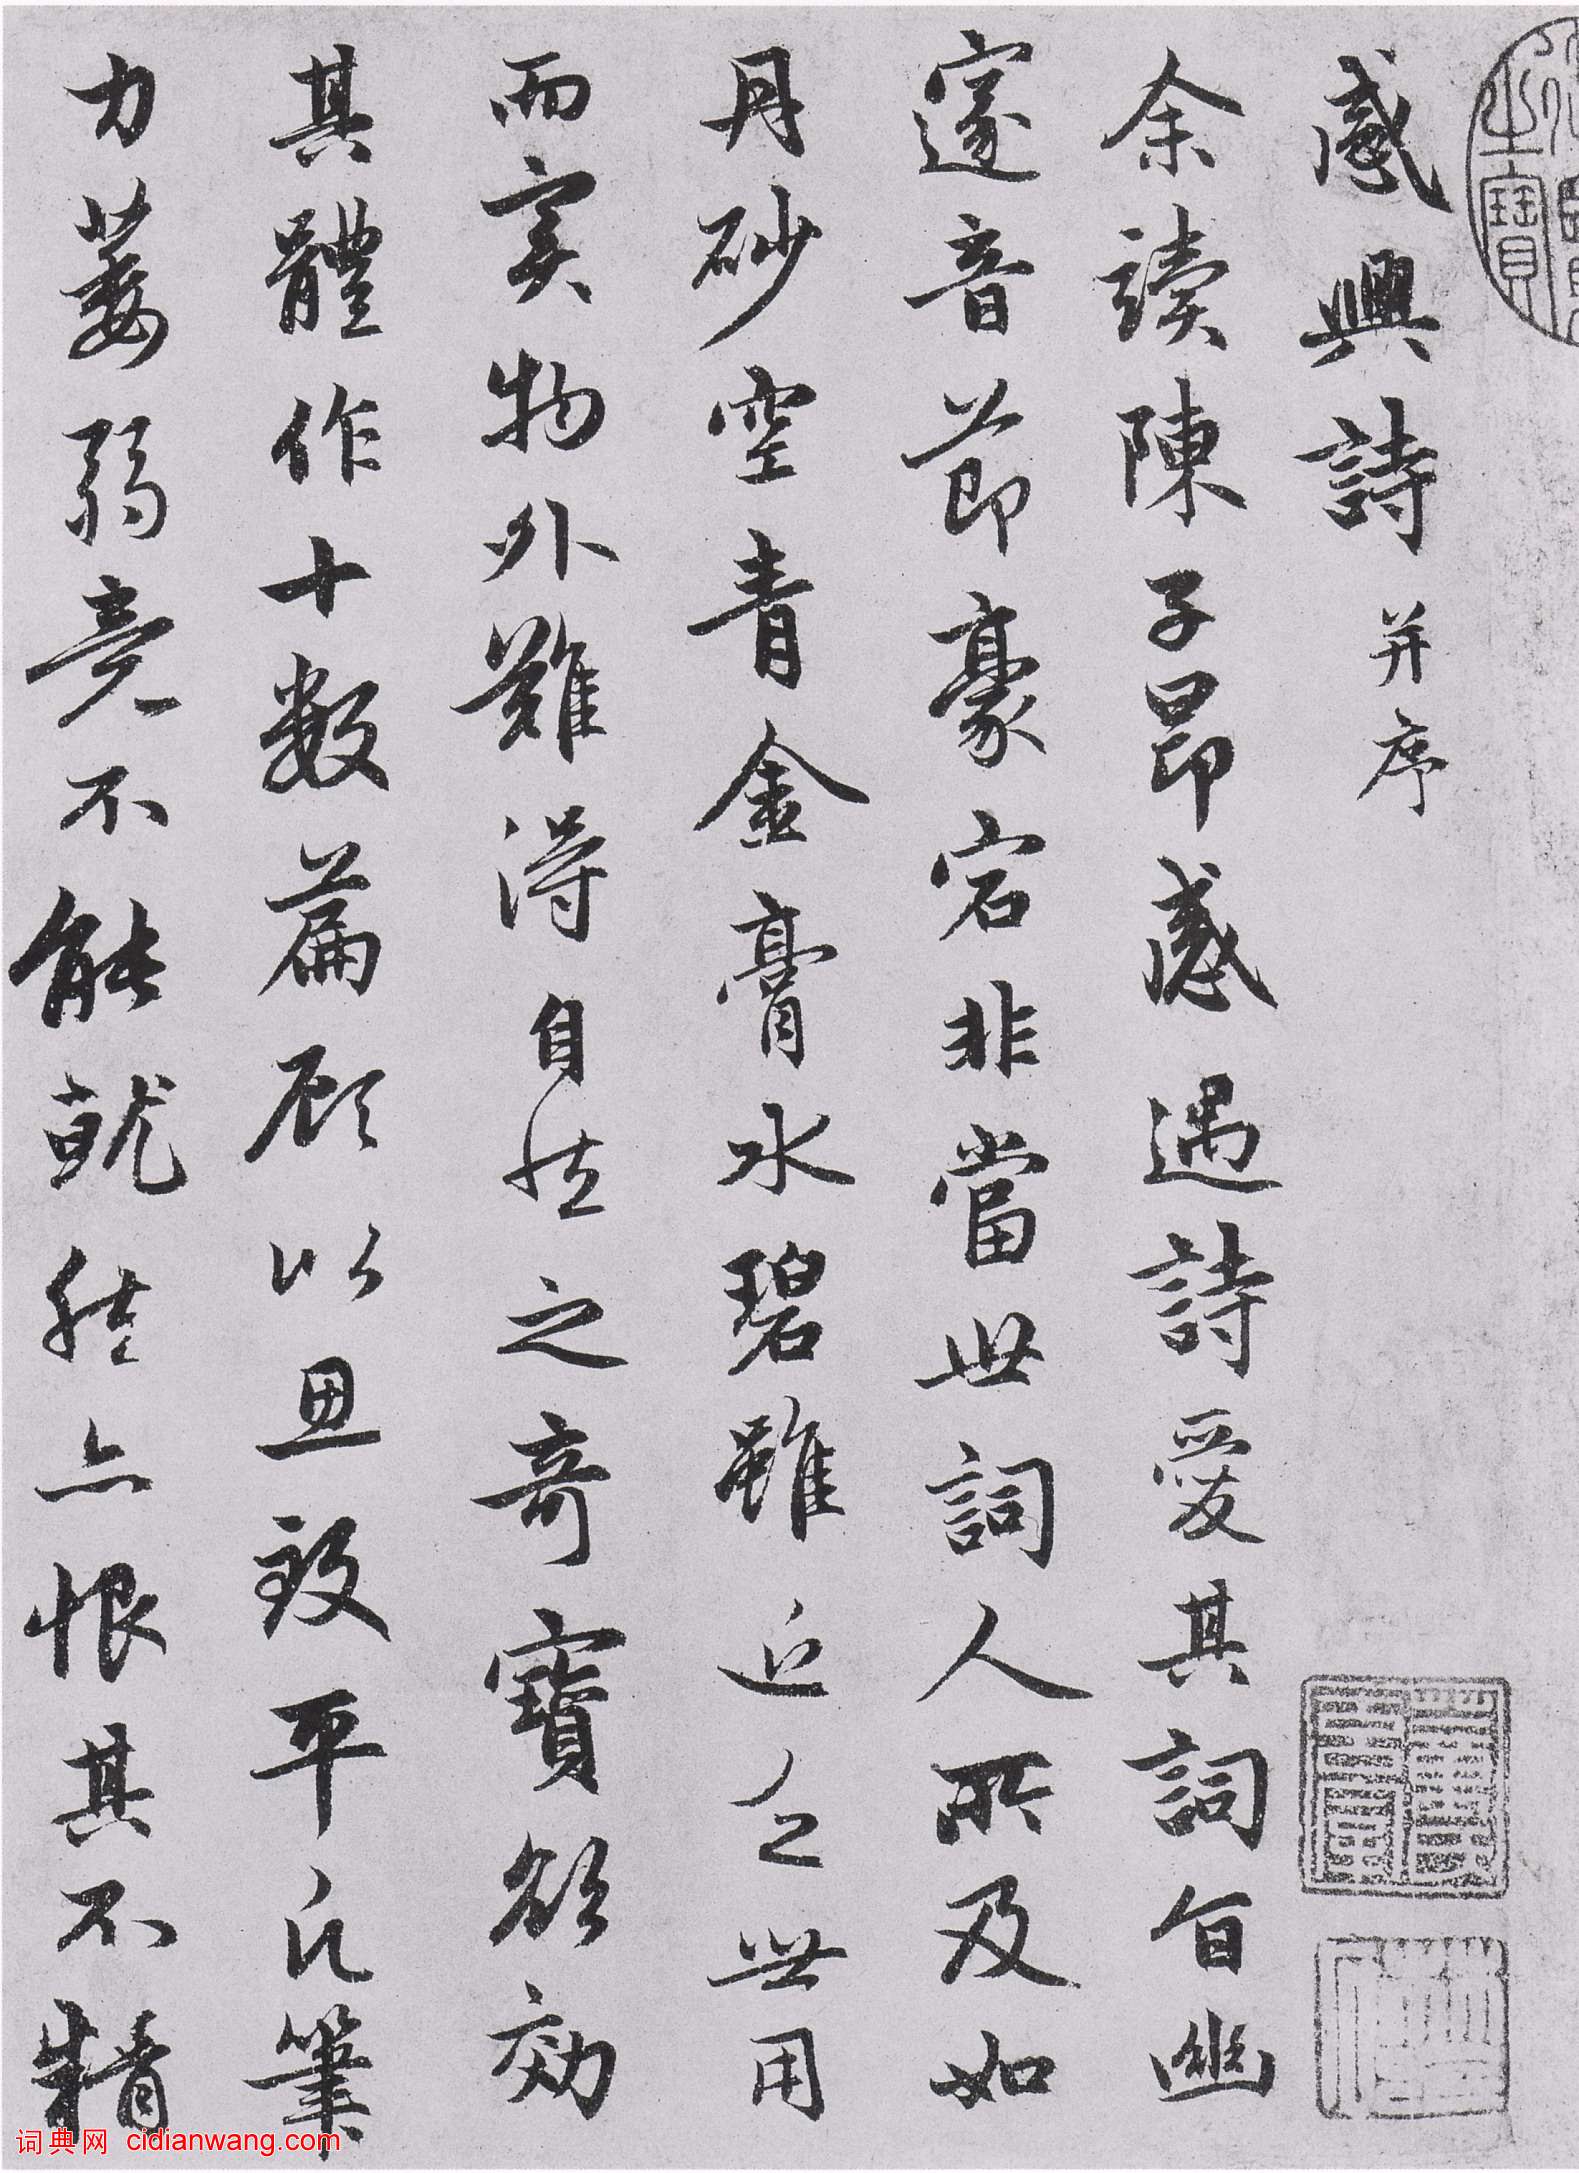 之寶
感興詩并序
余讀陳子昂感遇詩愛其詞旨幽
邃音節豪宕非當世詞人所及如
丹砂空青金膏水碧雖近乏世用
而實物外難得自然之奇寶欲効
其體作十數篇顧以思致平凡筆
力萎弱竟不能就然亦恨其不精
词典网 cidianwang.com